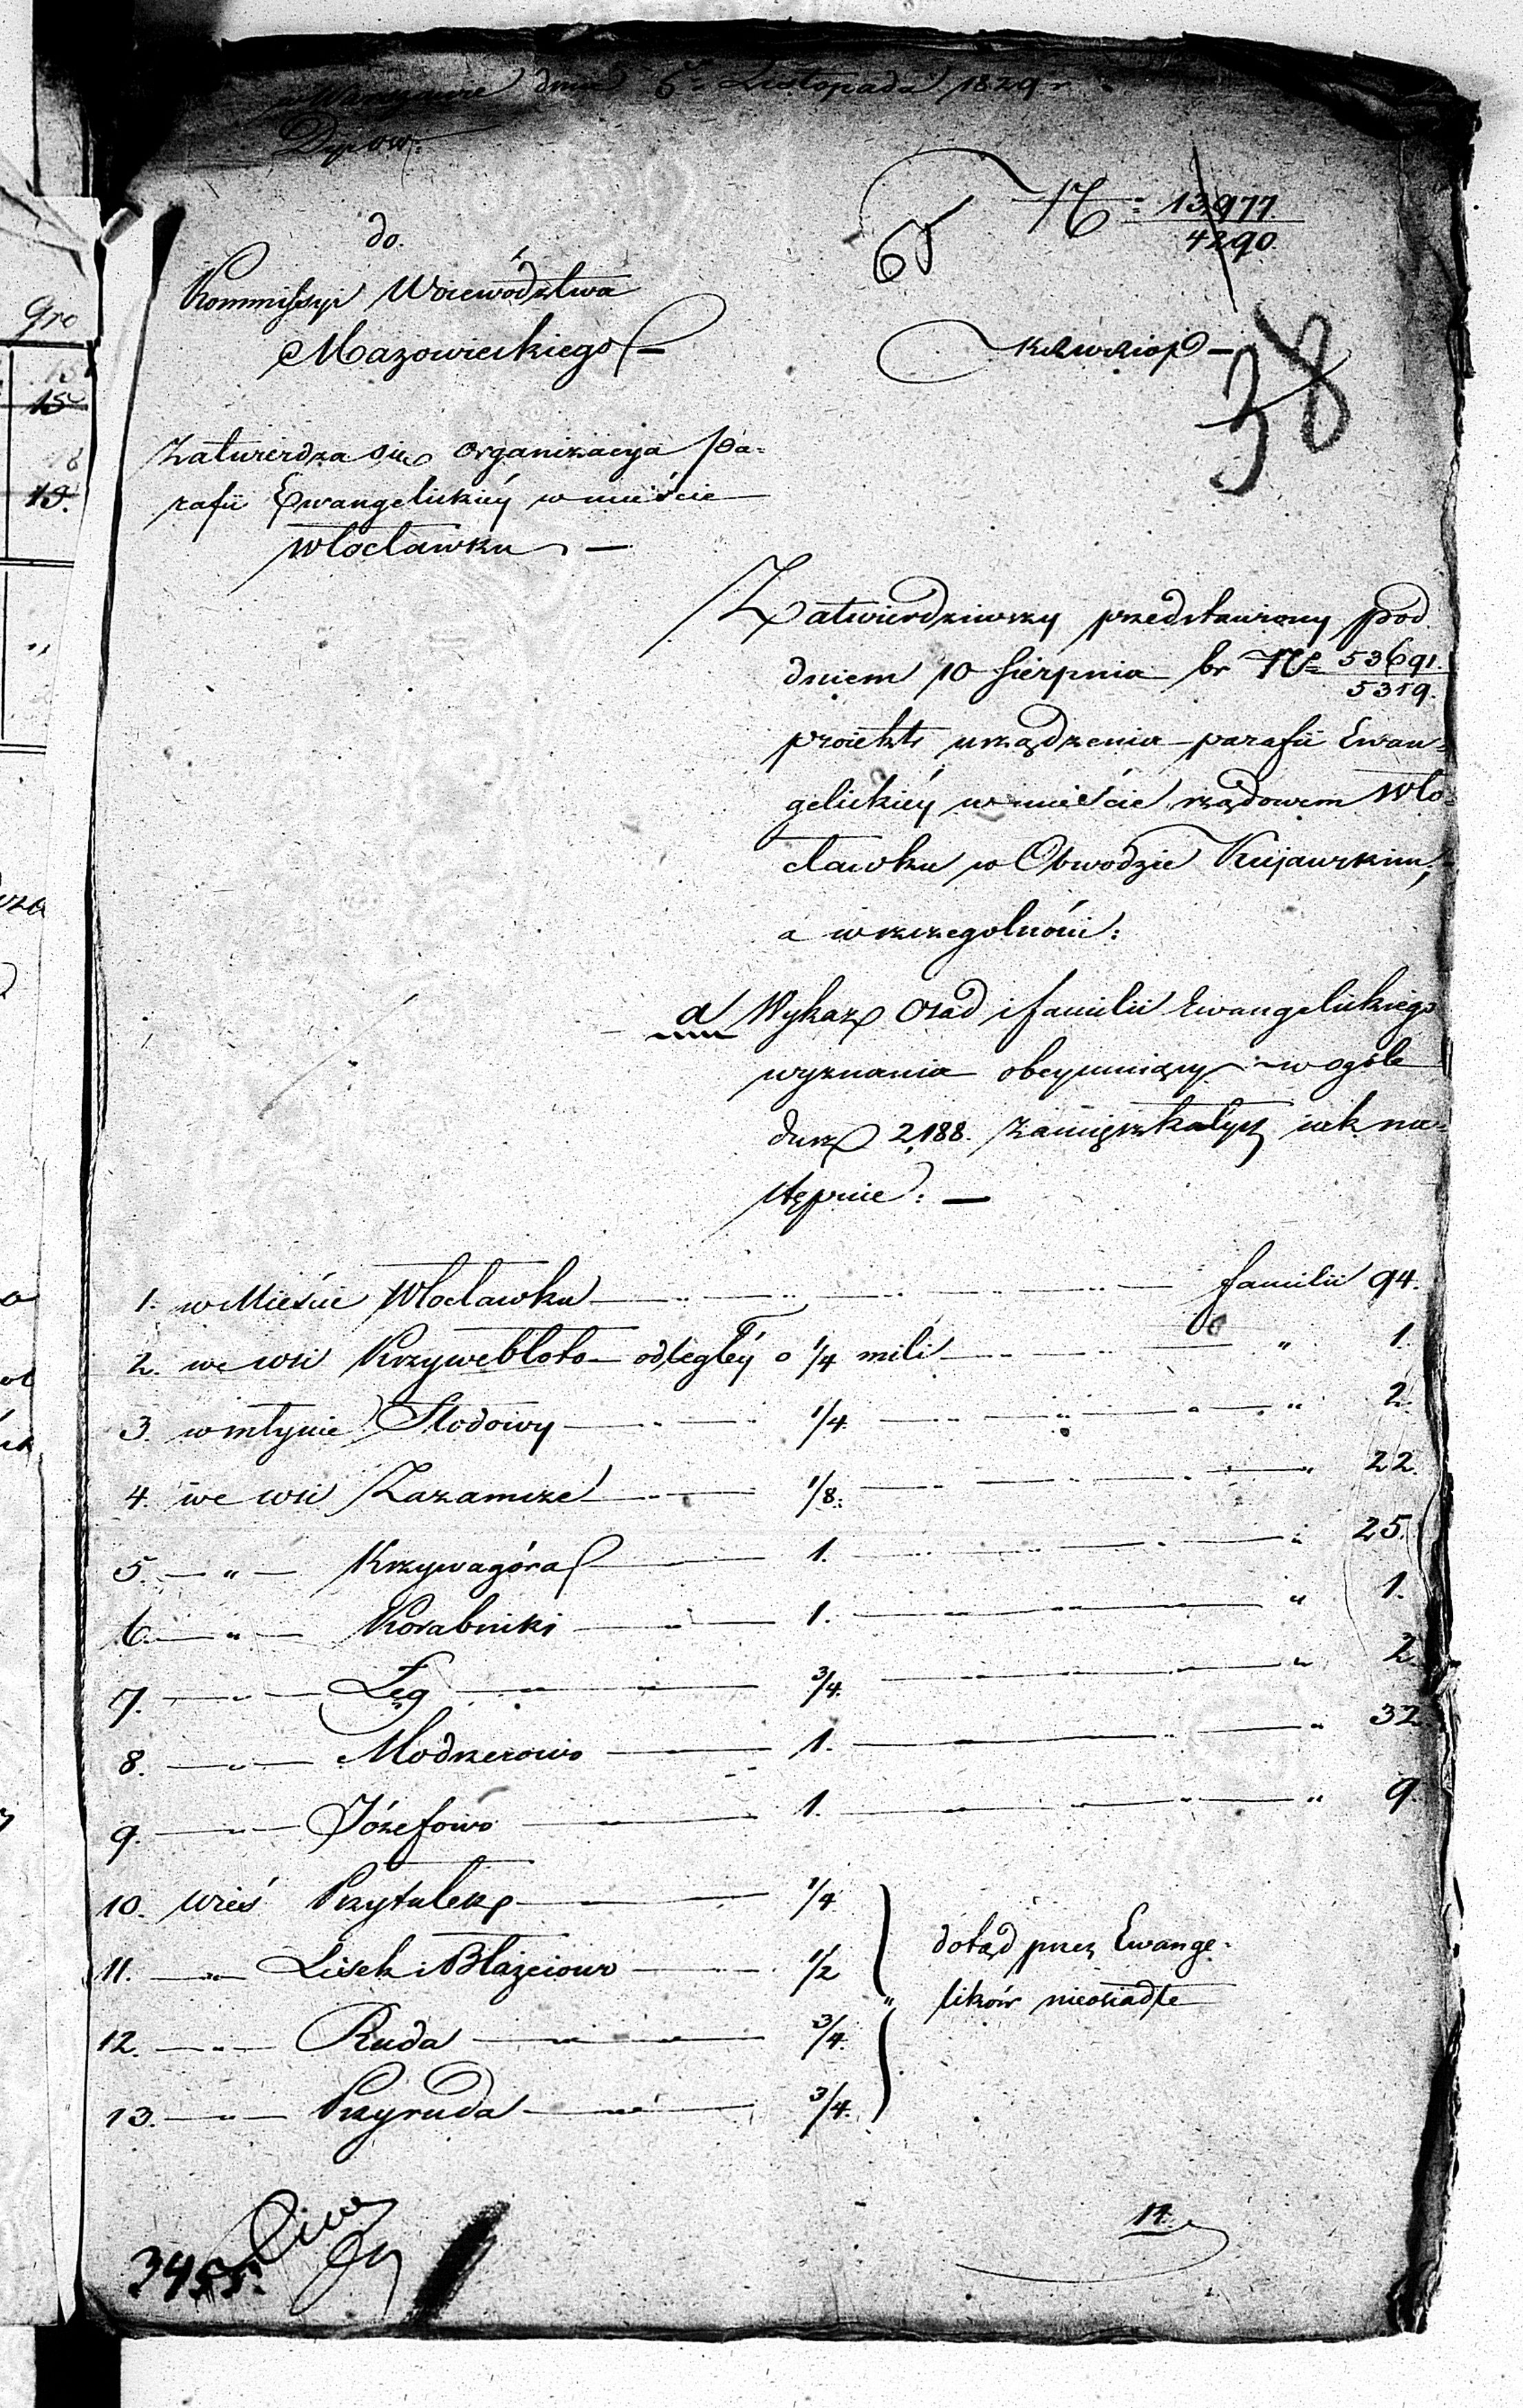 w Warszawie dnia 5go Listopada 1829 r
Dyrow:
No 13977
4290.
do.
Kommissyi Woiewództwa
Mazowieckiego
38
Zatwierdza się organizacya Pa-
rafii Ewangelickiéy w mieście
Włocławku —
Zatwierdziwszy przedstawiony pod
dniem 10 Sierpnia br No 53691.
5319.
proiekt urządzenia parafii Ewan-
gelickiéy w mieście rządowem Wło-
cławku w Obwodzie Kujawskim,
a w szczególności:
a Wykaz Osad i familii Ewangelickiego
wyznania obeymuiący w ogóle
dusz 2,188. zamięszkałych iak na-
stępnie: —
1. w Mieście Włocławku — familii 94.
2. we wsi Krzywebłoto odległéy o 1/4 mili — " 1.
3. w młynie Słodowy — 1/4. — " 2.
4. we wsi Zazamcze — 1/8. — " 22.
5. — " — Krzywagóra — 1. — " 25.
6. — " — Korabniki — 1. — " 1.
7. — " — Łęg — 3/4. — " 2.
8. — " — Modzerowo — 1. — " 32
9. — " — Józefowo — 1. — " 9.
10. wieś Przytulek — 1/4
11. — " — Lisek i Błażeiowo — 1/2
dotąd przez Ewange-
lików nieosiadłe
12. — " — Ruda — 3/4.
13. — " — Przyruda — 3/4.
14.
3455.